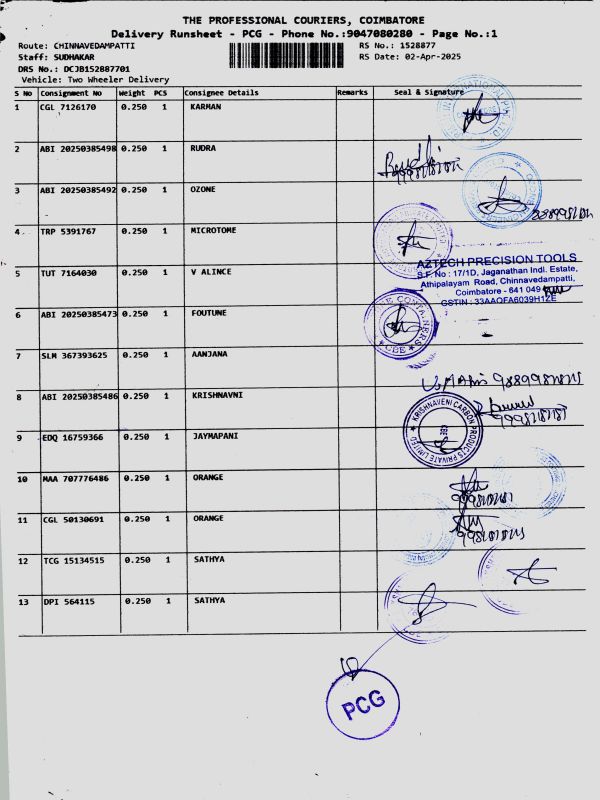 THE PROFESSIONAL COURIERS, COIMBATORE
Delivery Runsheet - PCG - Phone No.:9047080280 - Page No.:1
Route: CHINNAVEDAMPATTI RS No.: 1528877
Staff: SUDHAKAR RS Date: 02-Apr-2025
DRS No.: DCJB152887701
Vehicle: Two Wheeler Delivery
S No Consignment No Weight PCS Consignee Details Remarks Seal & Signature
1 CGL 7126170 0.250 1 KARMAN
2 ABI 20250385498 0.250 1 RUDRA
3 ABI 20250385492 0.250 1 OZONE
4 TRP 5391767 0.250 1 MICROTOME
AZTECH PRECISION TOOLS
S.F. No : 17/1D, Jaganathan Indl. Estate,
5 TUT 7164030 0.250 1 V ALINCE
Athipalayam Road, Chinnavedampatti,
Coimbatore - 641 049
GSTIN : 33AAOFA6039H1ZE
6 ABI 20250385473 0.250 1 FOUTUNE
CONTAINERS
CBE
7 SLM 367393625 0.250 1 AANJANA
8 ABI 20250385486 0.250 1 KRISHNAVNI
KRISHNAVENI CARBON PRODUCTS PRIVATE LIMITED
9 EDQ 16759366 0.250 1 JAYMAPANI
10 MAA 707776486 0.250 1 ORANGE
11 CGL 50130691 0.250 1 ORANGE
12 TCG 15134515 0.250 1 SATHYA
13 DPI 564115 0.250 1 SATHYA
PCG